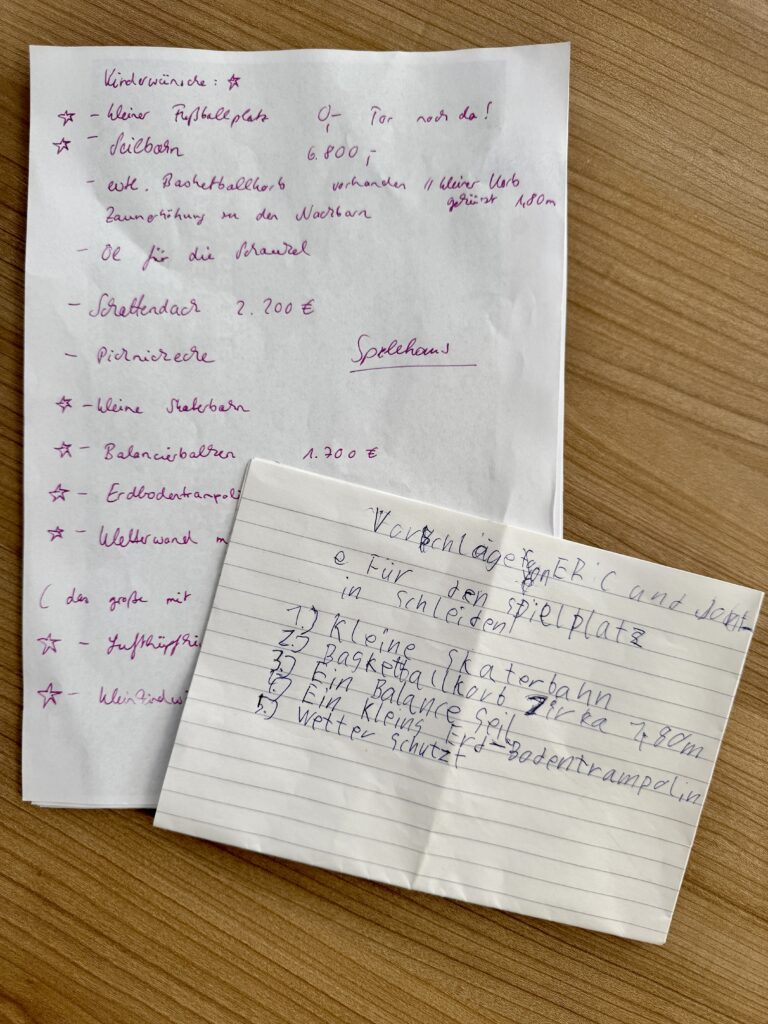 Kinderwünsche: ☆
☆ - kleiner Fußballplatz 0,- Tor noch da!
☆ - Seilbahn 6.800,-
- evtl. Basketballkorb vorhanden // kleiner Korb
Zaunerhöhung zu den Nachbarn gekürzt 1,80m
- Öl für die Schaukel
- Schattendach 2.200 €
- Picknickecke Spielhaus
☆ - kleine Skaterbahn
☆ - Balancierbalken 1.700 €
☆ - Erdbodentrampoli
☆ - Kletterwand m
( das große mit
☆ - Lufthüpfki
☆ - Kleinkindwi
Vorschläge fon ERiC und
e Für den spielplatz
in schleiden
1.) Kleine skaterbahn
2.) Basketballkorb Zirka 1,80m
3.) Ein Balance Seil
4.) Ein kleins Erd-Bodentrampolin
5.) Wetter schutzt